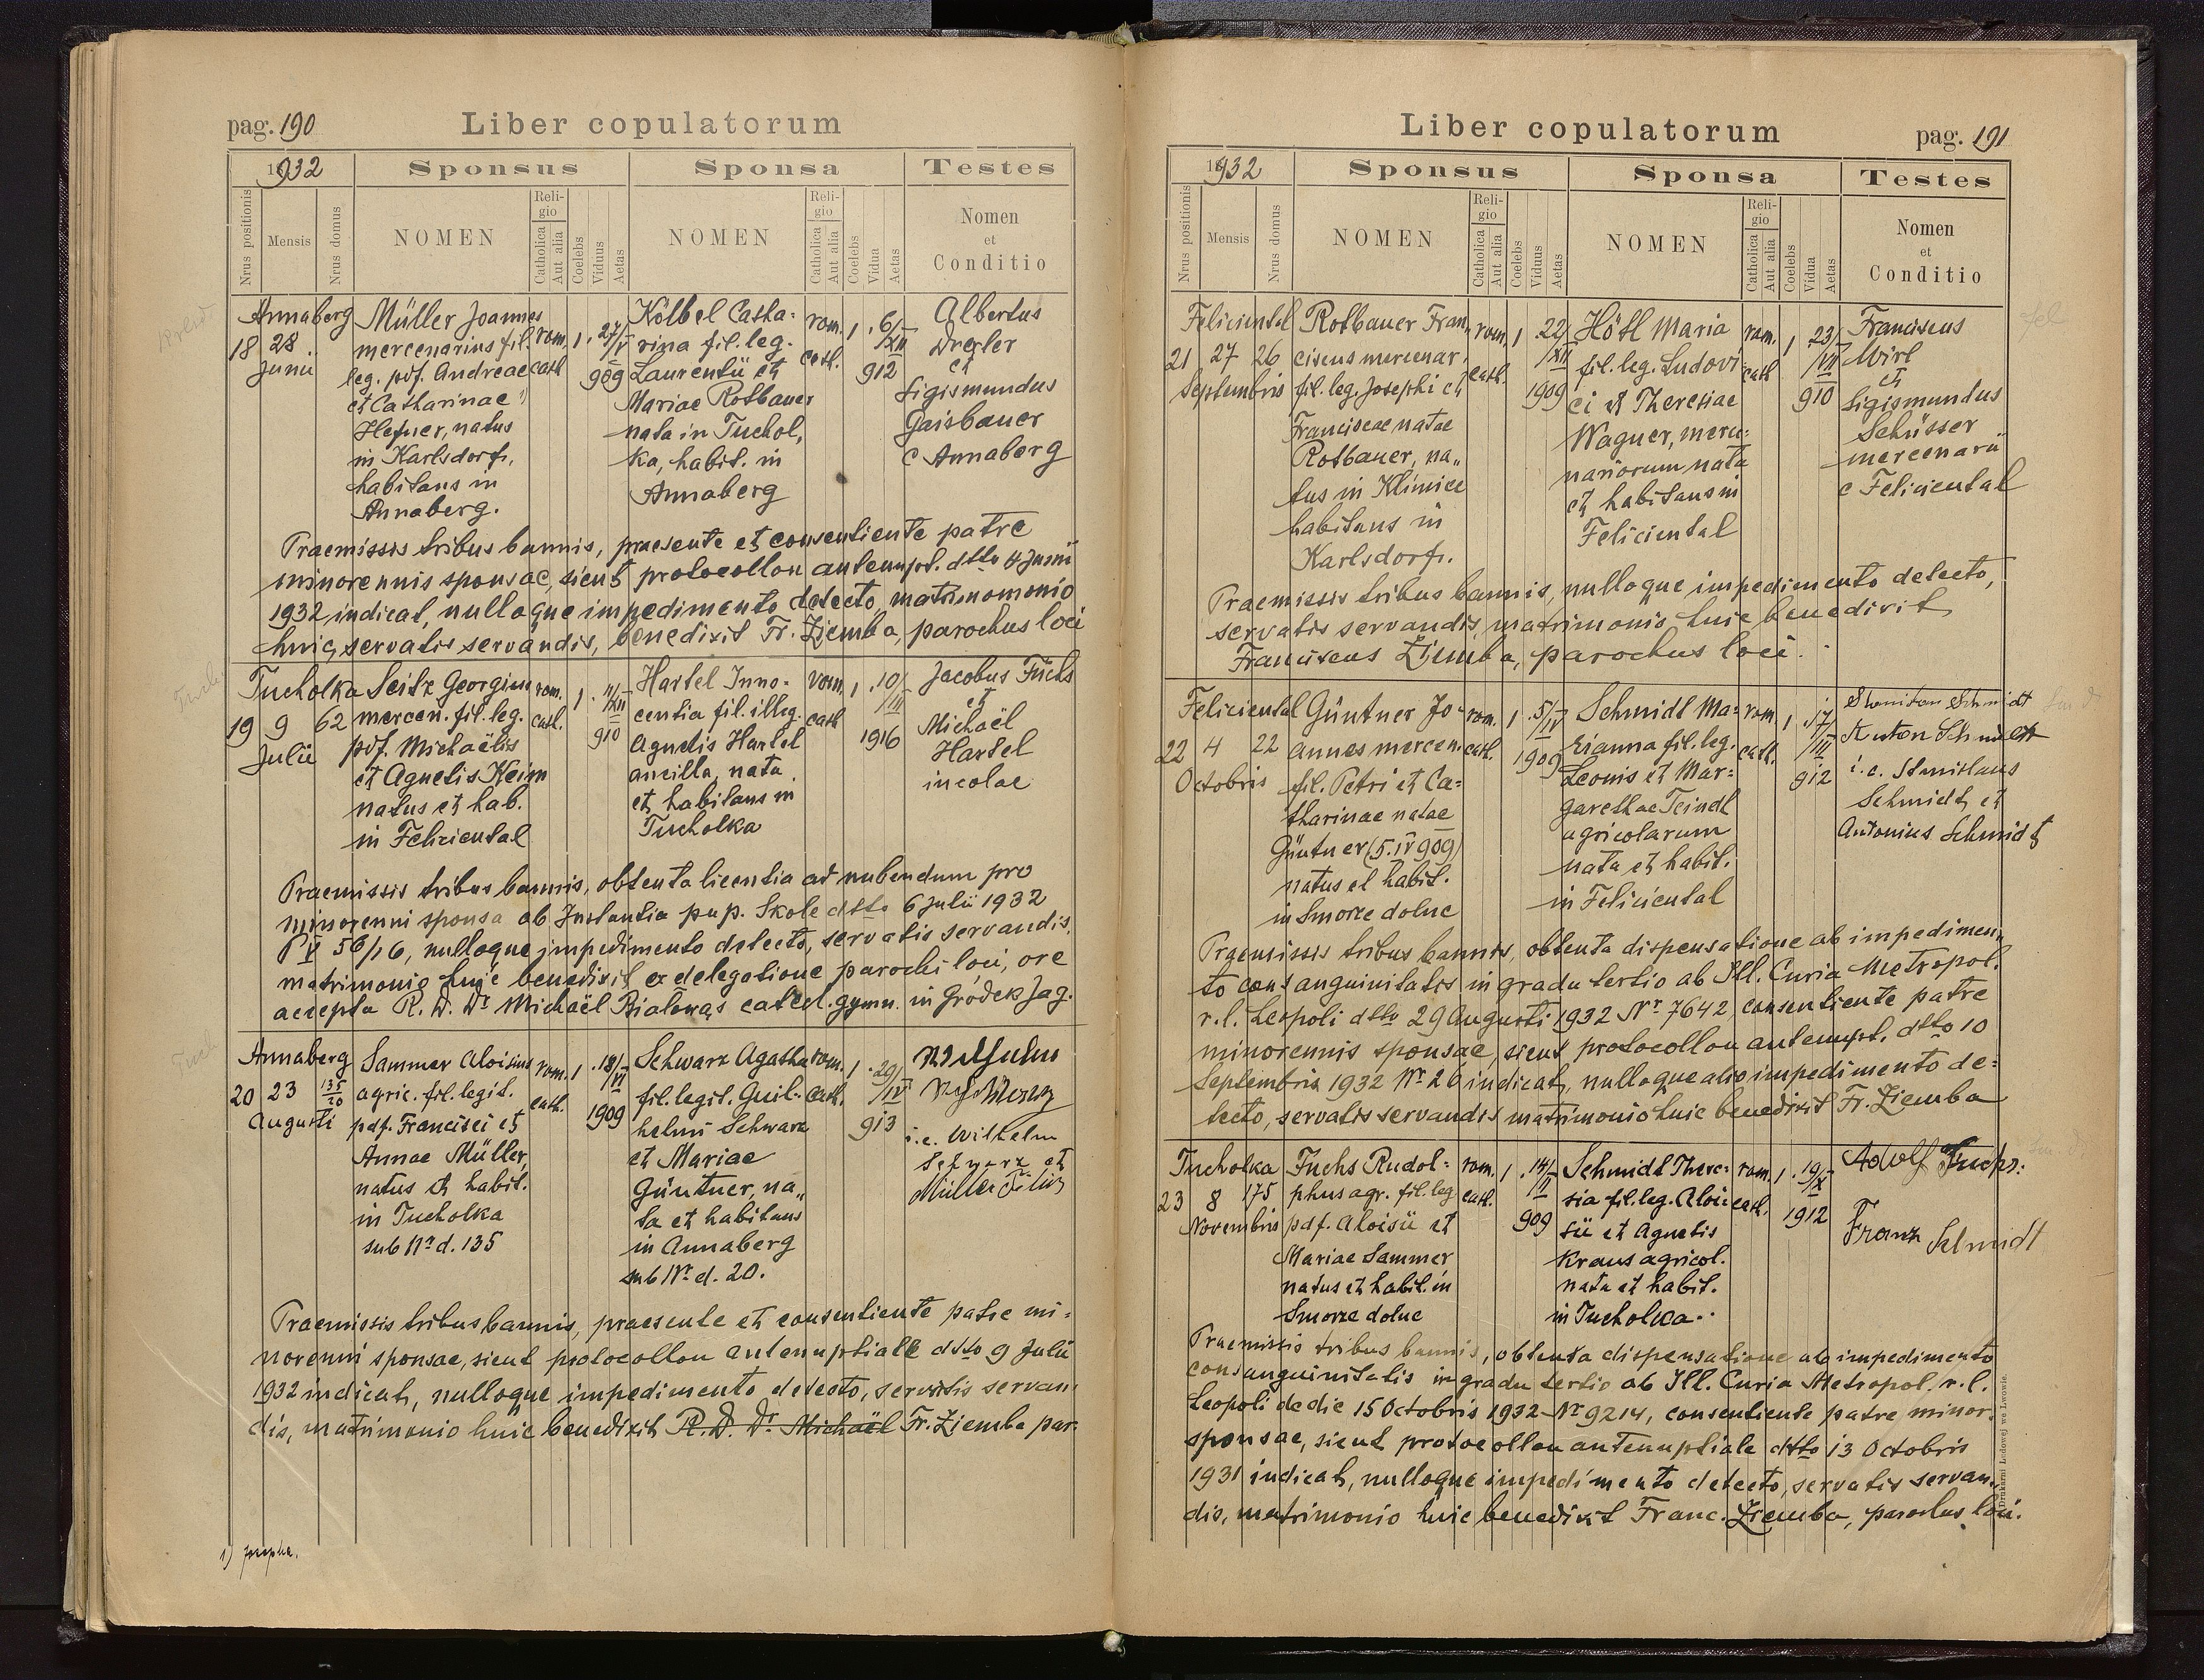 pag. 190
Liber copulatorum
1932
Sponsus
Sponsa
Testes
Nrus positionis
Mensis
Nrus domus
NOMEN
Religio
Catholica
Aut alia
Coelebs
Viduus
Aetas
NOMEN
Religio
Catholica
Aut alia
Coelebs
Vidua
Aetas
Nomen
et
Conditio
Annaberg
18 28
Junii
Müller Joannes
mercenarius fil.
leg. pdf. Andreae
et Catharinae 1)
Hefner, natus
in Karlsdorf,
habitans in
Annaberg.
rom.
cath
1
27/V
909
Kölbel Catha-
rina fil. leg.
Laurentii et
Mariae Rotbauer
nata in Tuchol,
ka, habit. in
Annaberg
rom.
cath.
1
6/XII
912
Albertus
Drexler
et
Sigismundus
Gaisbauer
e Annaberg
Praemissis tribus bannis, praesente et consentiente patre
minorennis sponsae, sicut protocollon antenupt. dtto 4 Junii
1932 indicat, nulloque impedimento detecto, matrimomonio
huic, servatis servandis, benedixit Fr. Ziemba, parochus loci
Tucholka
19 9 62
Julii
Seitz Georgius
mercen. fil. leg.
pdf. Michaëlis
et Agnetis Keim
natus et hab.
in Feliziental
rom.
cath.
1
11/XII
910
Hartel Inno-
centia fil. illeg.
Agnetis Hartel
ancilla, nata
et habitans in
Tucholka
rom.
cath
1
10/III
1916
Jacobus Fuchs
et
Michaël
Hartel
incolae
Praemissis tribus bannis, obtenta licentia ad nubendum pro
minorenni sponsa ab Instantia pup. Skole dtto 6 Julii 1932
P V 56/16, nulloque impedimento detecto, servatis servandis,
matrimonio huic benedixit ex delegatione parochi loci, ore
accepta R. D. Dr Michaël Białowąs catech. gymn. in Gródek Jag.
Annaberg
20 23 135/20
Augusti
Sammer Aloisius
agric. fil. legit.
pdf. Francisci et
Annae Müller,
natus et habit.
in Tucholka
sub Nr d. 135
rom.
cath.
1
18/VI
1909
Schwarz Agatha
fil. legit. Guil-
helmi Schwarz
et Mariae
Güntner, na,,
ta et habitans
in Annaberg
sub Nr. d. 20.
rom.
cath.
1
29/IV
913
i.e. Wilhelm
Schwarz et
Müller Filip
Praemissis tribus bannis, praesente et consentiente patre mi-
norenni sponsae, sicut protocollon antenuptiale dtto 9 Julii
1932 indicat, nulloque impedimento detecto, servatis servan,
dis, matrimonio huic benedixit R. D. Dr. Michaël Fr. Ziemba par.
Liber copulatorum
pag. 191
1932
Sponsus
Sponsa
Testes
Nrus positionis
Mensis
Nrus domus
NOMEN
Religio
Catholica
Aut alia
Coelebs
Viduus
Aetas
NOMEN
Religio
Catholica
Aut alia
Coelebs
Vidua
Aetas
Nomen
et
Conditio
Feliciental
21 27 26
Septembris
Rotbauer Fran,
ciscus mercenar.
fil. leg. Josephi et
Franciscae natae
Rotbauer, na,,
tus in Klimiec
habitans in
Karlsdorf.
rom.
cath.
1
22/XII
1909
Hötl Maria
fil. leg. Ludovi
ci et Theresiae
Wagner, merce-
nariorum nata
et habitans in
Feliciental
rom.
cath
1
23/VII
910
Franciscus
Wirt
et
Sigismundus
Schüsser
mercenarii
e Feliciental
Praemissis tribus bannis, nulloque impedimento detecto,
servatis servandis, matrimonio huic benedixit
Franciscus Ziemba, parochus loci.
Feliciental
22 4 22
Octobris
Güntner Jo-
annes mercen.
fil. Petri et Ca-
tharinae natae
Güntner (5.IV 909)
natus et habit.
in Smorze dolne
rom.
cath.
1
5/IV
1909
Schmidt Ma-
rianna fil. leg.
Leonis et Mar-
garethae Teindl
agricolarum
nata et habit.
in Feliciental
rom
cath.
1
17/III
912
Schmidt
Anton Schmidt
i.e. Stanislaus
Schmidt et
Antonius Schmidt
Praemissis tribus bannis, obtenta dispensatione ab impedimen,,
to consanguinitatis in gradu tertio ab Ill. Curia Metropol.
r. l. Leopoli dtto 29 Augusti 1932 Nr 7642 consentiente patre
minorennis sponsae, sicut protocollon antenupt. dtto 10
Septembris 1932 Nr 26 indicat, nulloque alio impedimento de-
tecto, servatis servandis matrimonio huic benedixit Fr. Ziemba
Tucholka
23 8 175
Novembris
Fuchs Rudol-
phus agr. fil. leg
pdf. Aloisii et
Mariae Sammer
natus et habit. in
Smorze dolne
rom.
cath.
1
14/II
909
Schmidt There-
sia fil. leg. Aloi-
sii et Agnetis
Kraus agricol.
nata et habit.
in Tucholka.
rom.
cath.
1
19/X
1912
Adolf Fuchs.
Franz Schmidt
Praemissis tribus bannis, obtenta dispensatione ab impedimento
consanguinitatis in gradu tertio ab Ill. Curia Metropol. r. l.
Leopoli de die 15 Octobris 1932 Nr 9214, consentiente patre minor.
sponsae, sicut protocollon antenuptiale dtto 13 Octobris
1931 indicat, nulloque impedimento detecto, servatis servan,,
dis, matrimonio huic benedixit Franc. Ziemba, parochus loci.
Drukarni Ludowej we Lwowie.